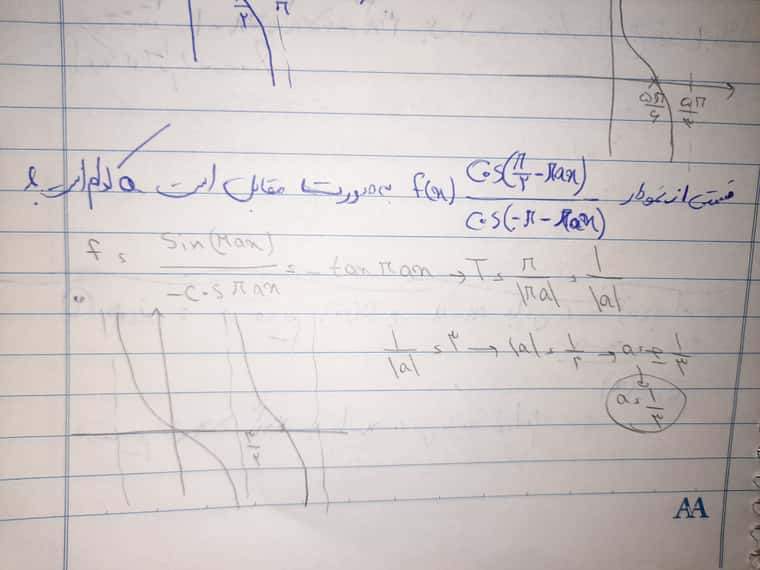 π/۲ π
۵π/۶ ۵π/۴
قسمتی از نمودار f(x) cos(π/۲ - πax) / cos(-π - πax) به صورت مقابل است a کدام است؟
f = sin(πax) / -cos πax = -tan πax → T = π/|πa| = 1/|a|
1/|a| = ۳ → |a| = 1/۳ → a = 1/۳
a = -1/۳
۳/۲
AA